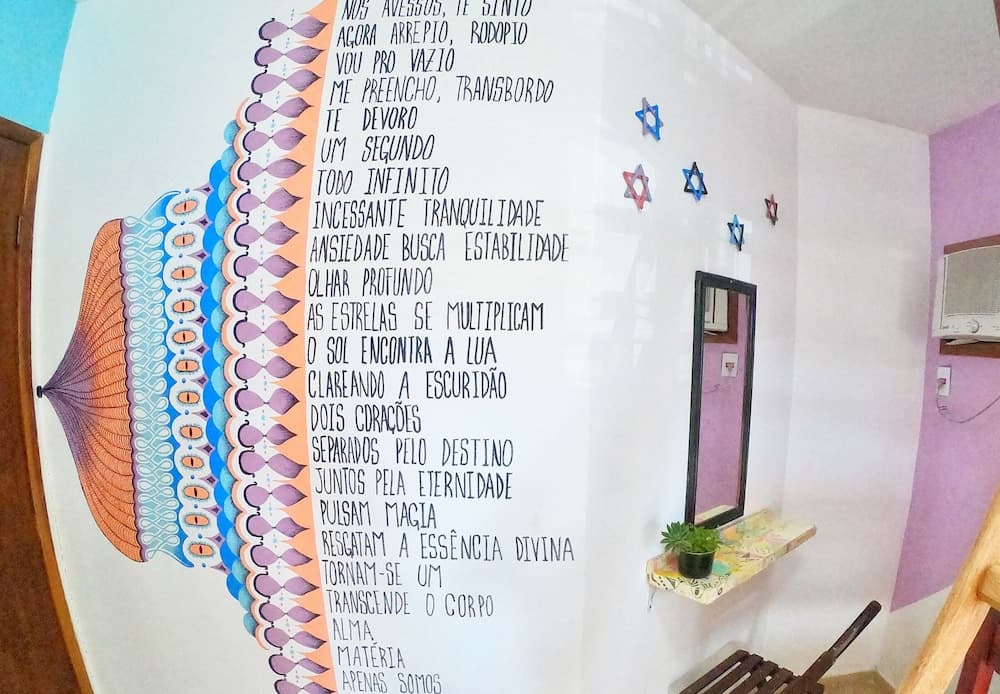 NOS AVESSOS, TE SINTO
AGORA ARREPIO, RODOPIO
VOU PRO VAZIO
ME PREENCHO, TRANSBORDO
TE DEVORO
UM SEGUNDO
TODO INFINITO
INCESSANTE TRANQUILIDADE
ANSIEDADE BUSCA ESTABILIDADE
OLHAR PROFUNDO
AS ESTRELAS SE MULTIPLICAM
O SOL ENCONTRA A LUA
CLAREANDO A ESCURIDÃO
DOIS CORAÇÕES
SEPARADOS PELO DESTINO
JUNTOS PELA ETERNIDADE
PULSAM MAGIA
RESGATAM A ESSÊNCIA DIVINA
TORNAM-SE UM
TRANSCENDE O CORPO
ALMA
MATÉRIA
APENAS SOMOS